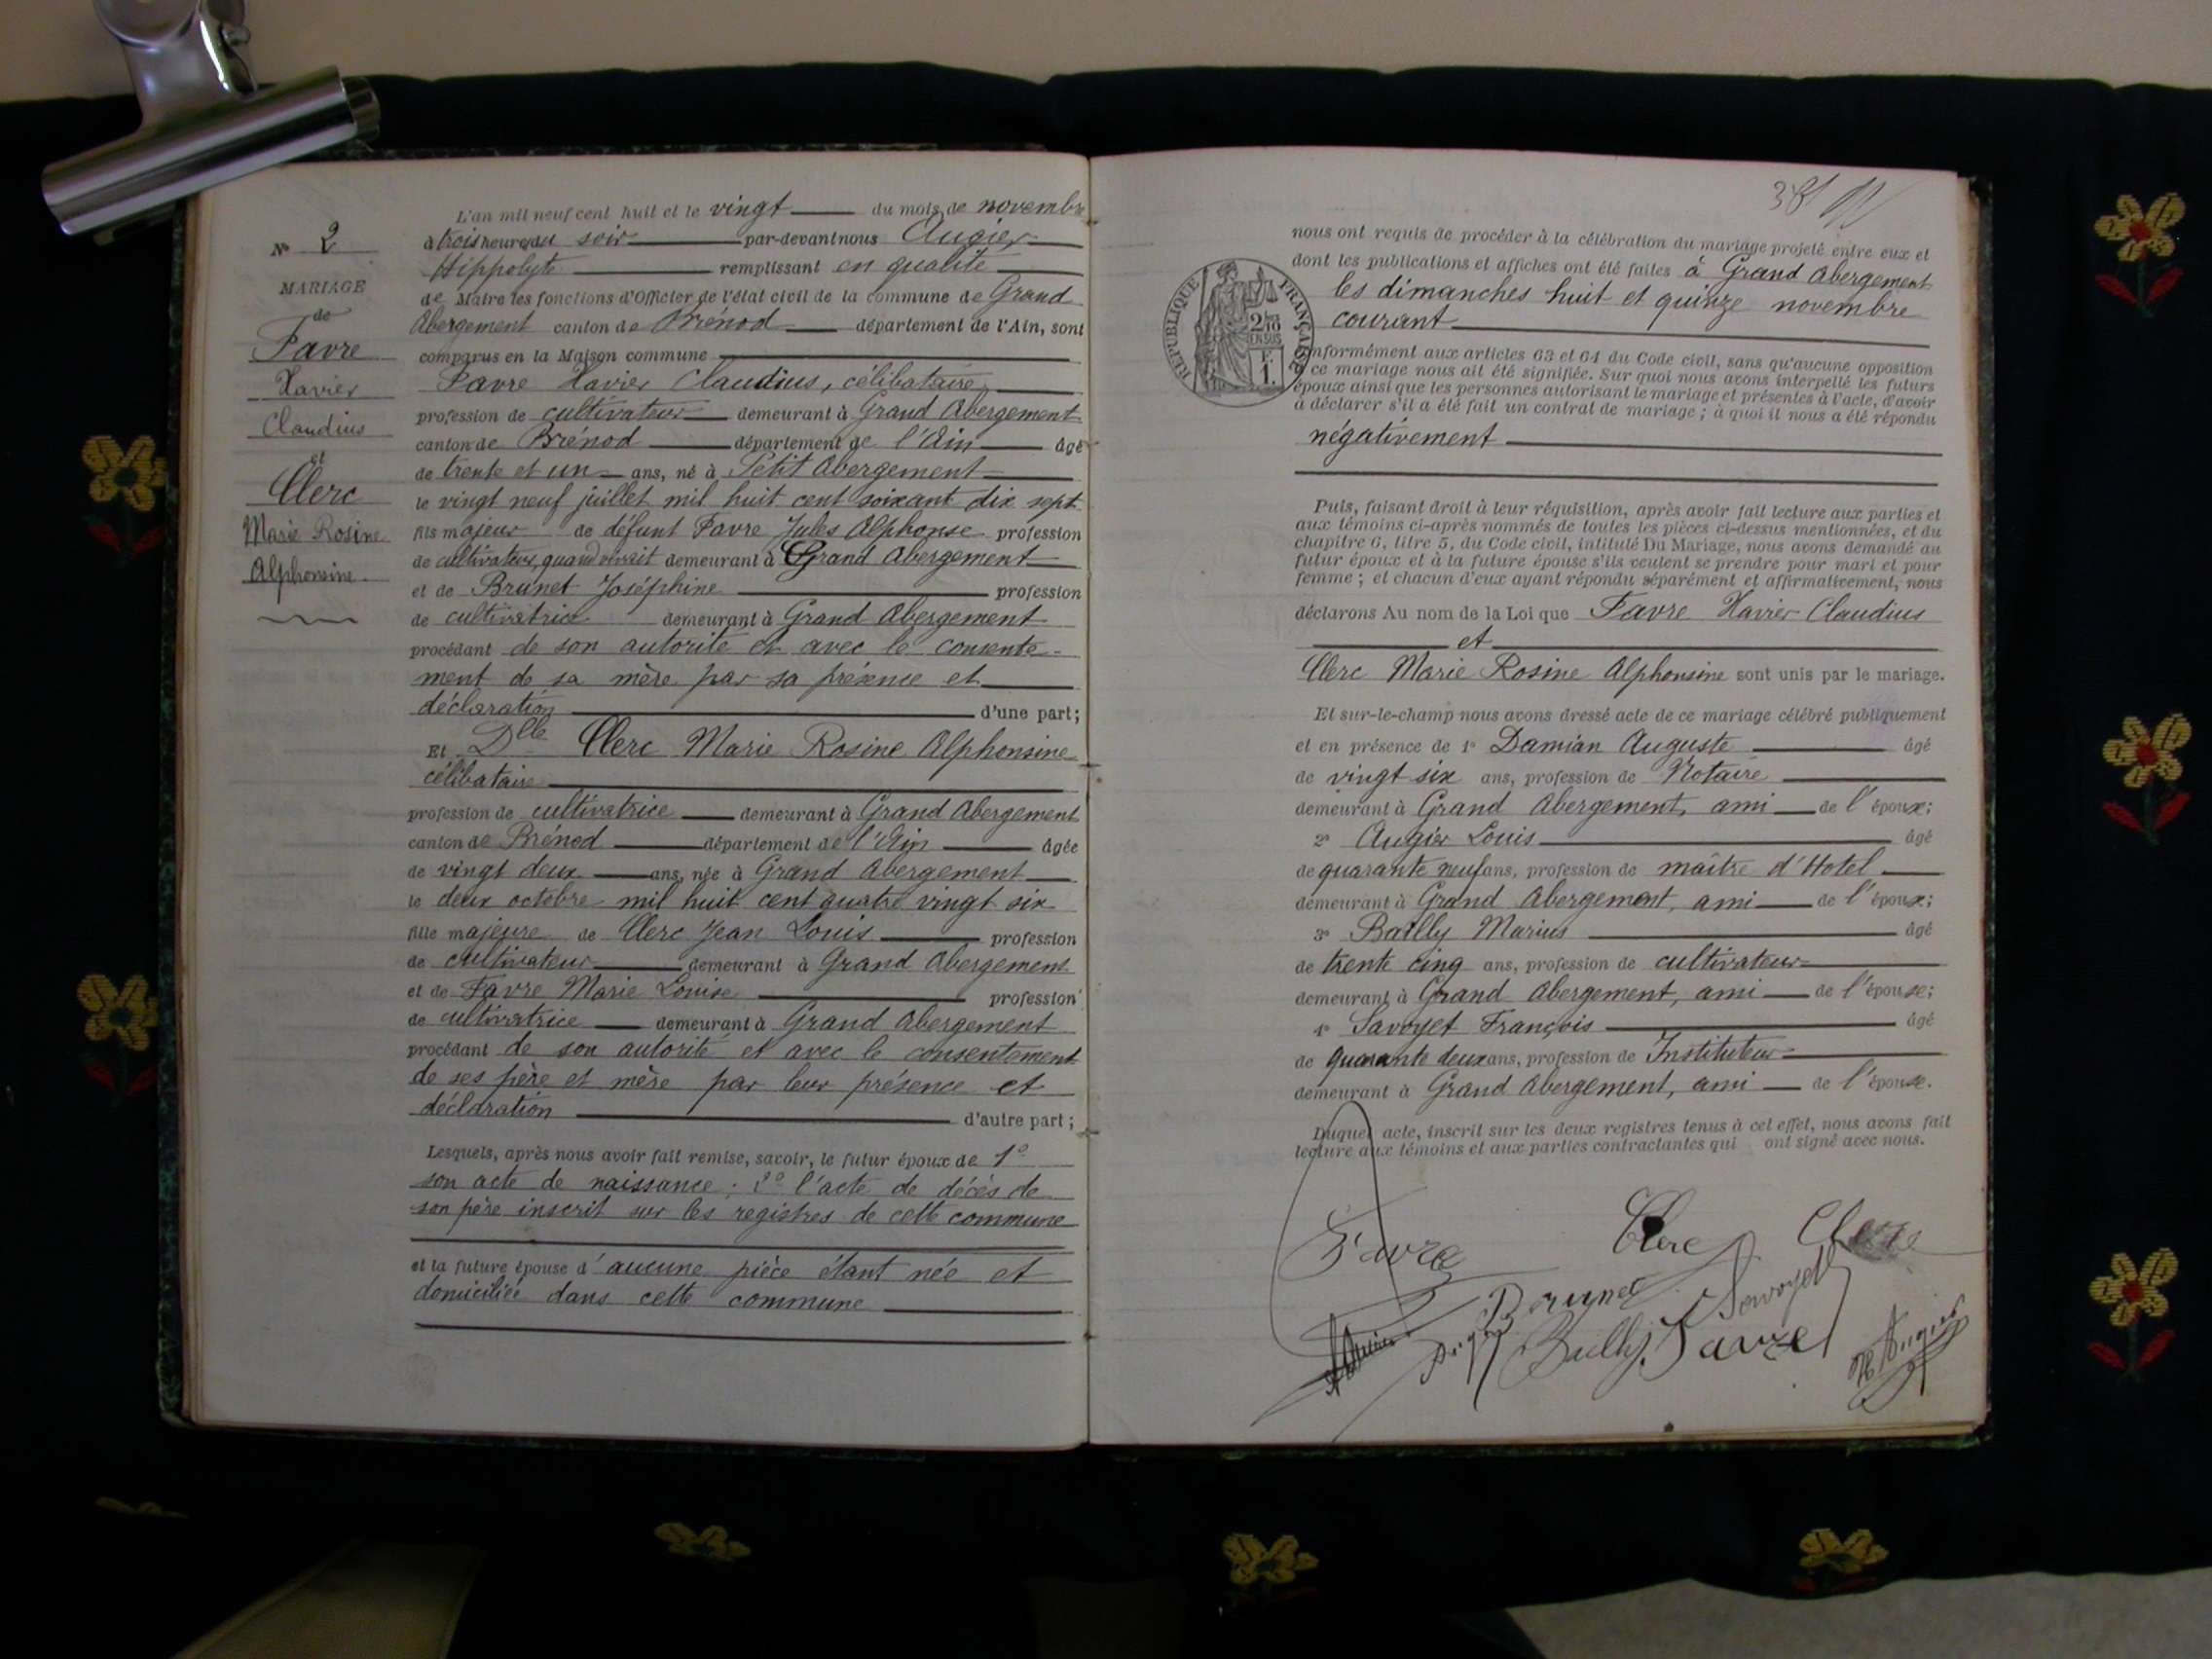 N° 2
MARIAGE
de
Favre
Xavier
Claudius
et
Clerc
Marie Rosine
Alphonsine
L'an mil neuf cent huit et le vingt du mois de novembre
à trois heures du soir par-devant nous Augier
Hippolyte remplissant en qualité
de Maire les fonctions d'Officier de l'état civil de la commune de Grand
Abergement canton de Brénod département de l'Ain, sont
comparus en la Maison commune
Favre Xavier Claudius, célibataire
profession de cultivateur demeurant à Grand Abergement
canton de Brénod département de l'Ain âgé
de trente et un ans, né à Petit Abergement
le vingt neuf juillet mil huit cent soixant dix sept
fils majeur de défunt Favre Jules Alphonse profession
de cultivateur, quand vivait demeurant à Grand Abergement
et de Brunet Joséphine profession
de cultivatrice demeurant à Grand Abergement
procédant de son autorité et avec le consente-
ment de sa mère par sa présence et
déclaration d'une part;
Et Dlle Clerc Marie Rosine Alphonsine
célibataire
profession de cultivatrice demeurant à Grand Abergement
canton de Brénod département de l'Ain âgée
de vingt deux ans, née à Grand Abergement
le deux octobre mil huit cent quatre vingt six
fille majeure de Clerc Jean Louis profession
de cultivateur demeurant à Grand Abergement
et de Favre Marie Louise profession
de cultivatrice demeurant à Grand Abergement
procédant de son autorité et avec le consentement
de ses père et mère par leur présence et
déclaration d'autre part;
Lesquels, après nous avoir fait remise, savoir, le futur époux de 1°
son acte de naissance; 2° l'acte de décès de
son père inscrit sur les registres de cette commune
et la future épouse d'aucune pièce étant née et
domiciliée dans cette commune
38
nous ont requis de procéder à la célébration du mariage projeté entre eux et
dont les publications et affiches ont été faites à Grand Abergement
les dimanches huit et quinze novembre
courant
RÉPUBLIQUE FRANÇAISE
2/10
EN SUS
F.
1.
nformément aux articles 63 et 64 du Code civil, sans qu'aucune opposition
ce mariage nous ait été signifiée. Sur quoi nous avons interpellé les futurs
époux ainsi que les personnes autorisant le mariage et présentes à l'acte, d'avoir
à déclarer s'il a été fait un contrat de mariage; à quoi il nous a été répondu
négativement
Puis, faisant droit à leur réquisition, après avoir fait lecture aux parties et
aux témoins ci-après nommés de toutes les pièces ci-dessus mentionnées, et du
chapitre 6, titre 5, du Code civil, intitulé Du Mariage, nous avons demandé au
futur époux et à la future épouse s'ils veulent se prendre pour mari et pour
femme; et chacun d'eux ayant répondu séparément et affirmativement, nous
déclarons Au nom de la Loi que Favre Xavier Claudius
et
Clerc Marie Rosine Alphonsine sont unis par le mariage.
Et sur-le-champ nous avons dressé acte de ce mariage célébré publiquement
et en présence de 1° Damian Auguste âgé
de vingt six ans, profession de Notaire
demeurant à Grand Abergement, ami de l'époux;
2° Augier Louis âgé
de quarante neuf ans, profession de maître d'Hotel
demeurant à Grand Abergement, ami de l'époux;
3° Bailly Marius âgé
de trente cinq ans, profession de cultivateur
demeurant à Grand Abergement, ami de l'épouse;
4° Savoyet François âgé
de quarante deux ans, profession de Instituteur
demeurant à Grand Abergement, ami de l'épouse.
Duquel acte, inscrit sur les deux registres tenus à cet effet, nous avons fait
lecture aux témoins et aux parties contractantes qui ont signé avec nous.
Favre Clerc Clerc
Brunet Savoyet
Bailly Favre H Augier